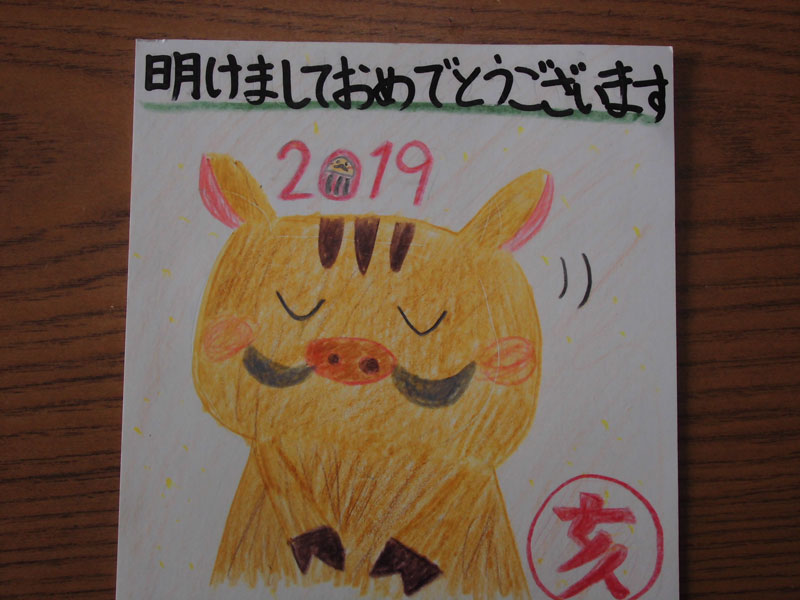 明けましておめでとうございます
2019
亥